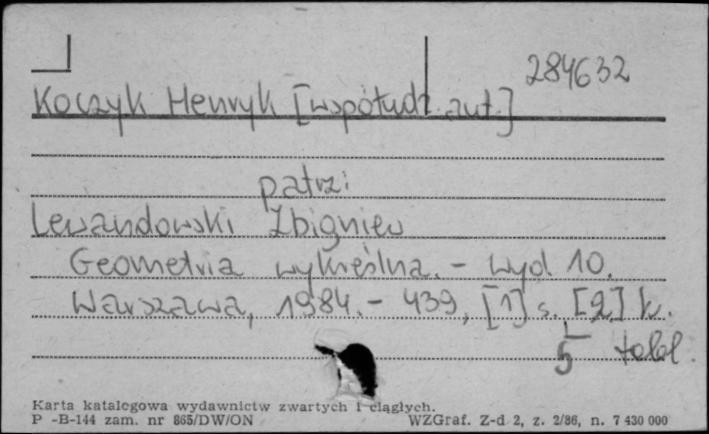 284632
Koczyk Henryk [współudz. aut.]
patrz:
Lewandowski Zbigniew
Geometria wykreślna. - Wyd. 10.
Warszawa, 1984. - 439, [1] s. [2] k.
5 tabl.
Karta katalogowa wydawnictw zwartych i ciągłych.
P -B-144 zam. nr 865/DW/ON WZGraf. Z-d 2, z. 2/86, n. 7 430 000